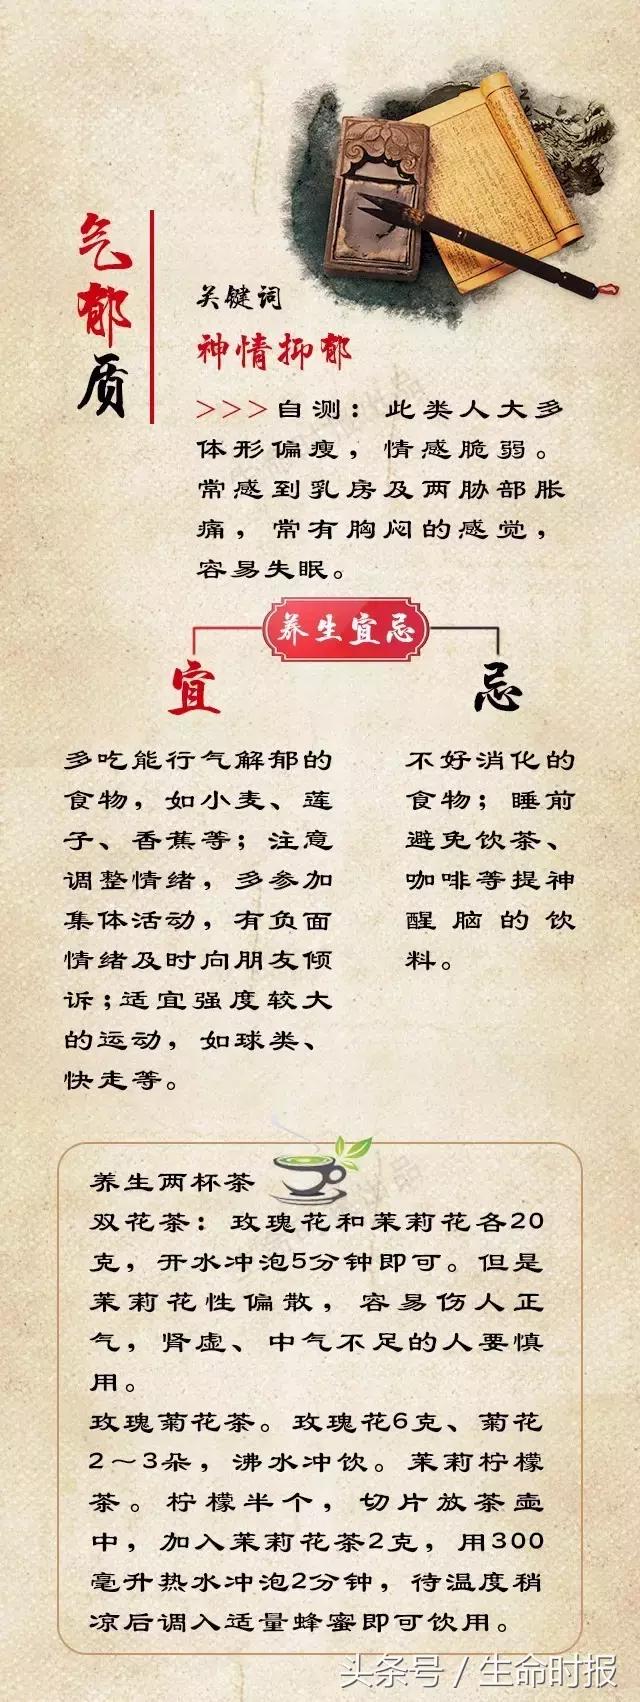 气郁质
关键词
神情抑郁
>>>自测：此类人大多
体形偏瘦，情感脆弱。
常感到乳房及两胁部胀
痛，常有胸闷的感觉，
容易失眠。
养生宜忌
宜
多吃能行气解郁的
食物，如小麦、莲
子、香蕉等；注意
调整情绪，多参加
集体活动，有负面
情绪及时向朋友倾
诉；适宜强度较大
的运动，如球类、
快走等。
忌
不好消化的
食物；睡前
避免饮茶、
咖啡等提神
醒脑的饮
料。
养生两杯茶
双花茶：玫瑰花和茉莉花各20
克，开水冲泡5分钟即可。但是
茉莉花性偏散，容易伤人正
气，肾虚、中气不足的人要慎
用。
玫瑰菊花茶。玫瑰花6克、菊花
2～3朵，沸水冲饮。茉莉柠檬
茶。柠檬半个，切片放茶壶
中，加入茉莉花茶2克，用300
毫升热水冲泡2分钟，待温度稍
凉后调入适量蜂蜜即可饮用。
头条号 / 生命时报